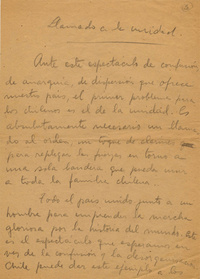 Llamado a la unidad.
Ante este espectáculo de confusión,
de anarquía, de dispersión que ofrece
nuestro país, el primer problema para
los chilenos es el de la unidad. Es
absolutamente necesario un llama
do al orden, un toque de clarín
para replegar las fuerzas en torno a
una sola bandera que pueda unir
a toda la familia chilena.
Todo el país unido junto a un
hombre para emprender la marcha
gloriosa por la historia del mundo. Este
es el espectáculo que esperamos en
vez de la confusión y la desorganización
Chile puede dar este ejemplo a los